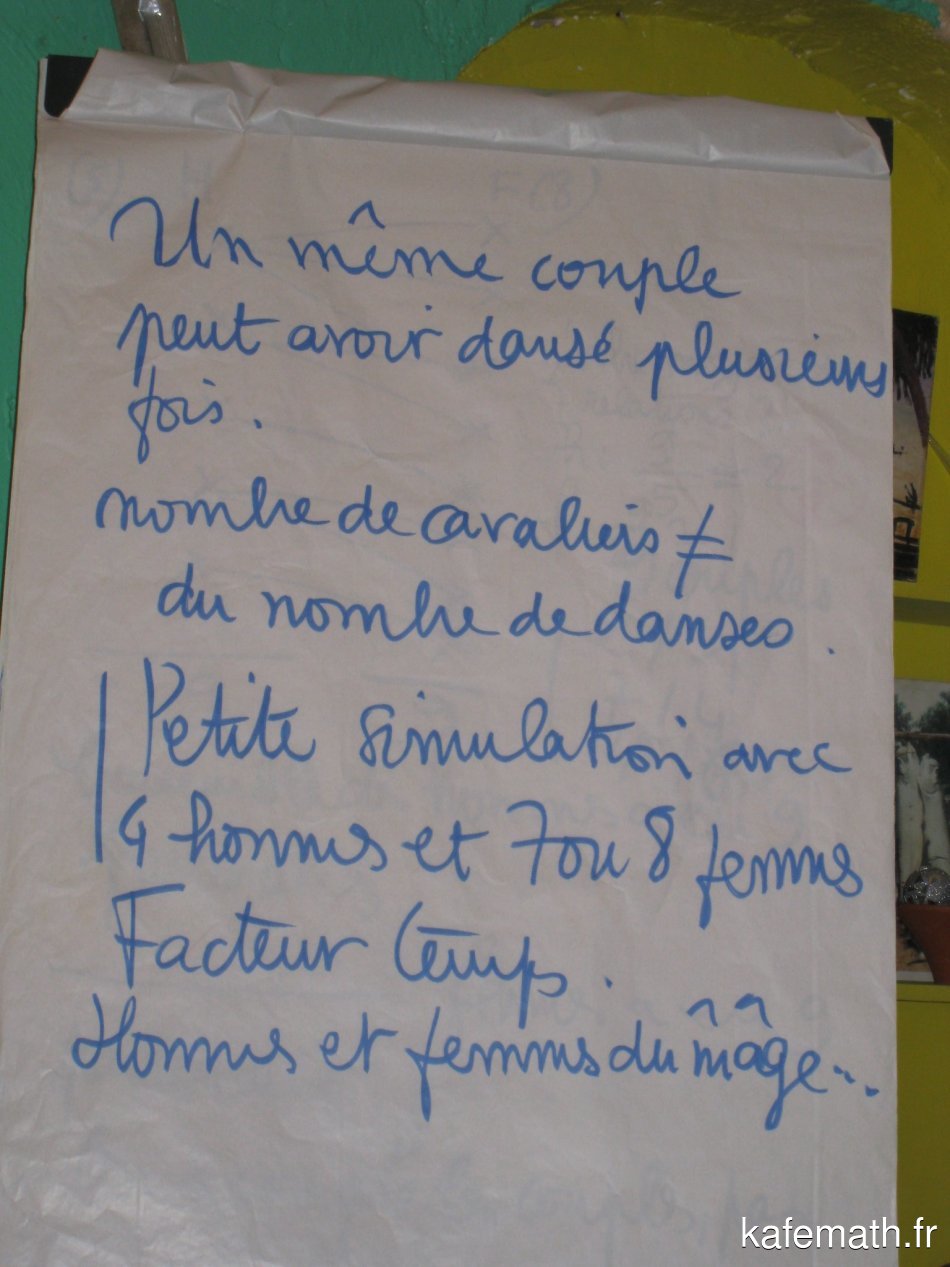 Un même couple
peut avoir dansé plusieurs
fois.
nombre de cavaliers ≠
du nombre de danses.
Petite simulation avec
4 hommes et 7 ou 8 femmes
Facteur temps.
Hommes et femmes du m̂ âge...
kafemath.fr